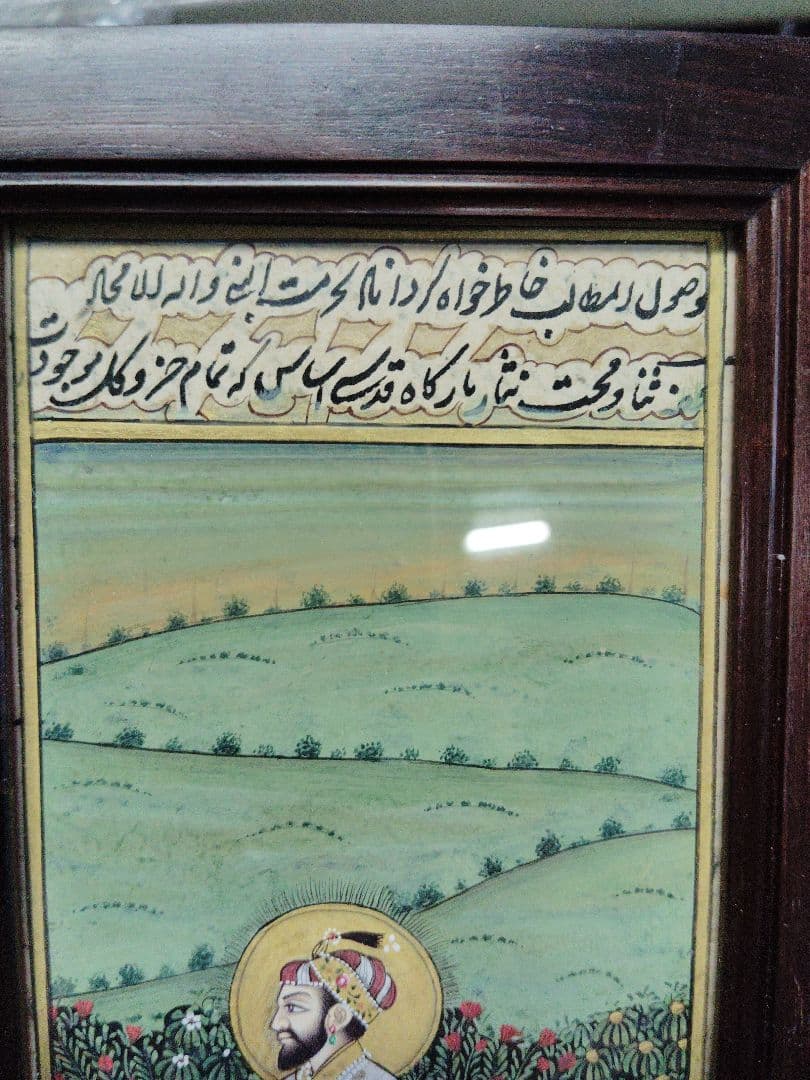 وصول المطالب خاطرخواه گرداناد بحرمت النبی واله الامجاد
ثنا و محمدت نثار بارگاه قدسی اساس که تمام جزو کل موجودات